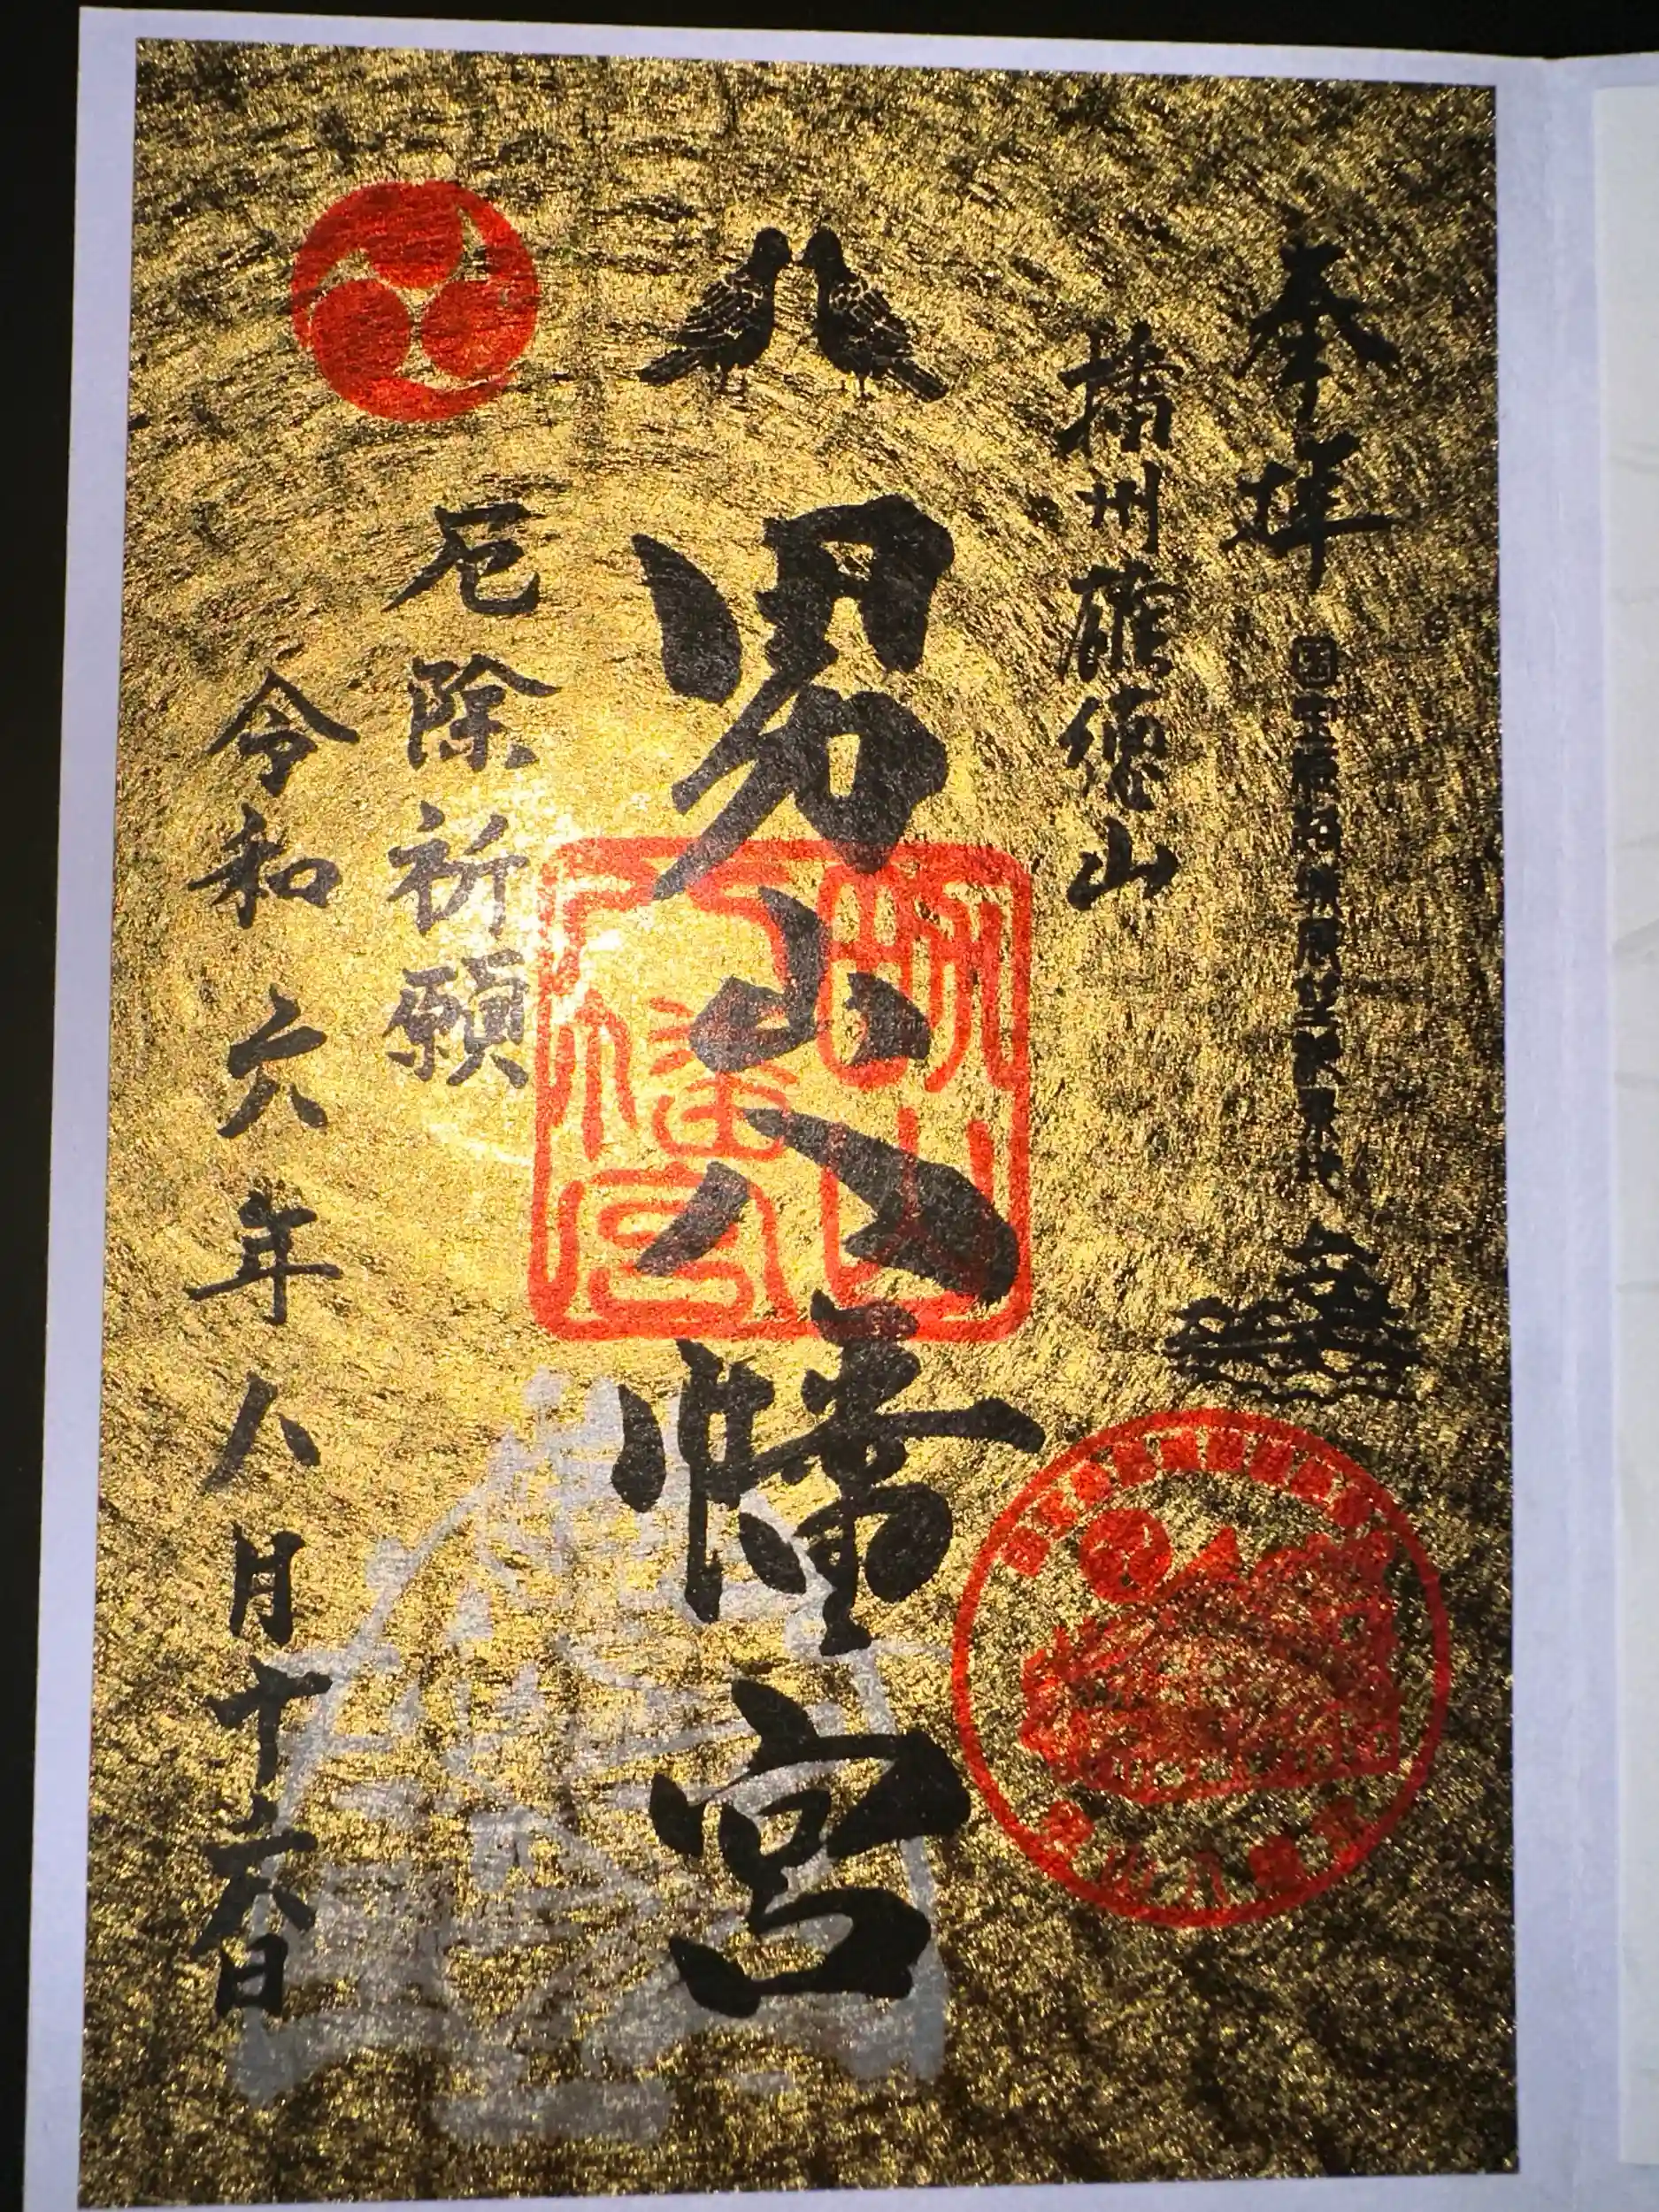 奉拝
播州雄德山
男山八幡宮
男山八幡宮
厄除祈願
令和六年八月十六日
男山八幡宮